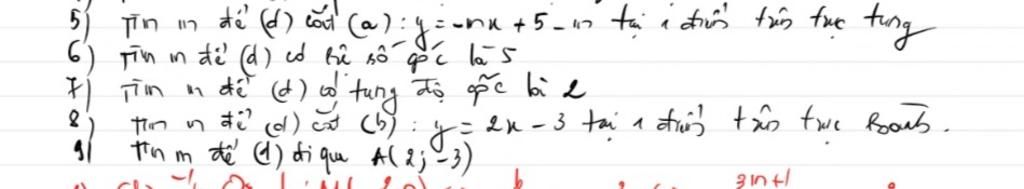 5) Tìm m để (d) cắt (a) : y = -mx + 5 - m tại 1 điểm trên trục tung
6) Tìm m để (d) có hệ số góc là 5
7) Tìm m để (d) có tung độ gốc là 2
8) Tìm m để (d) cắt (b) : y = 2x - 3 tại 1 điểm trên trục hoành.
9) Tìm m để (d) đi qua A(2; -3)
3m+1